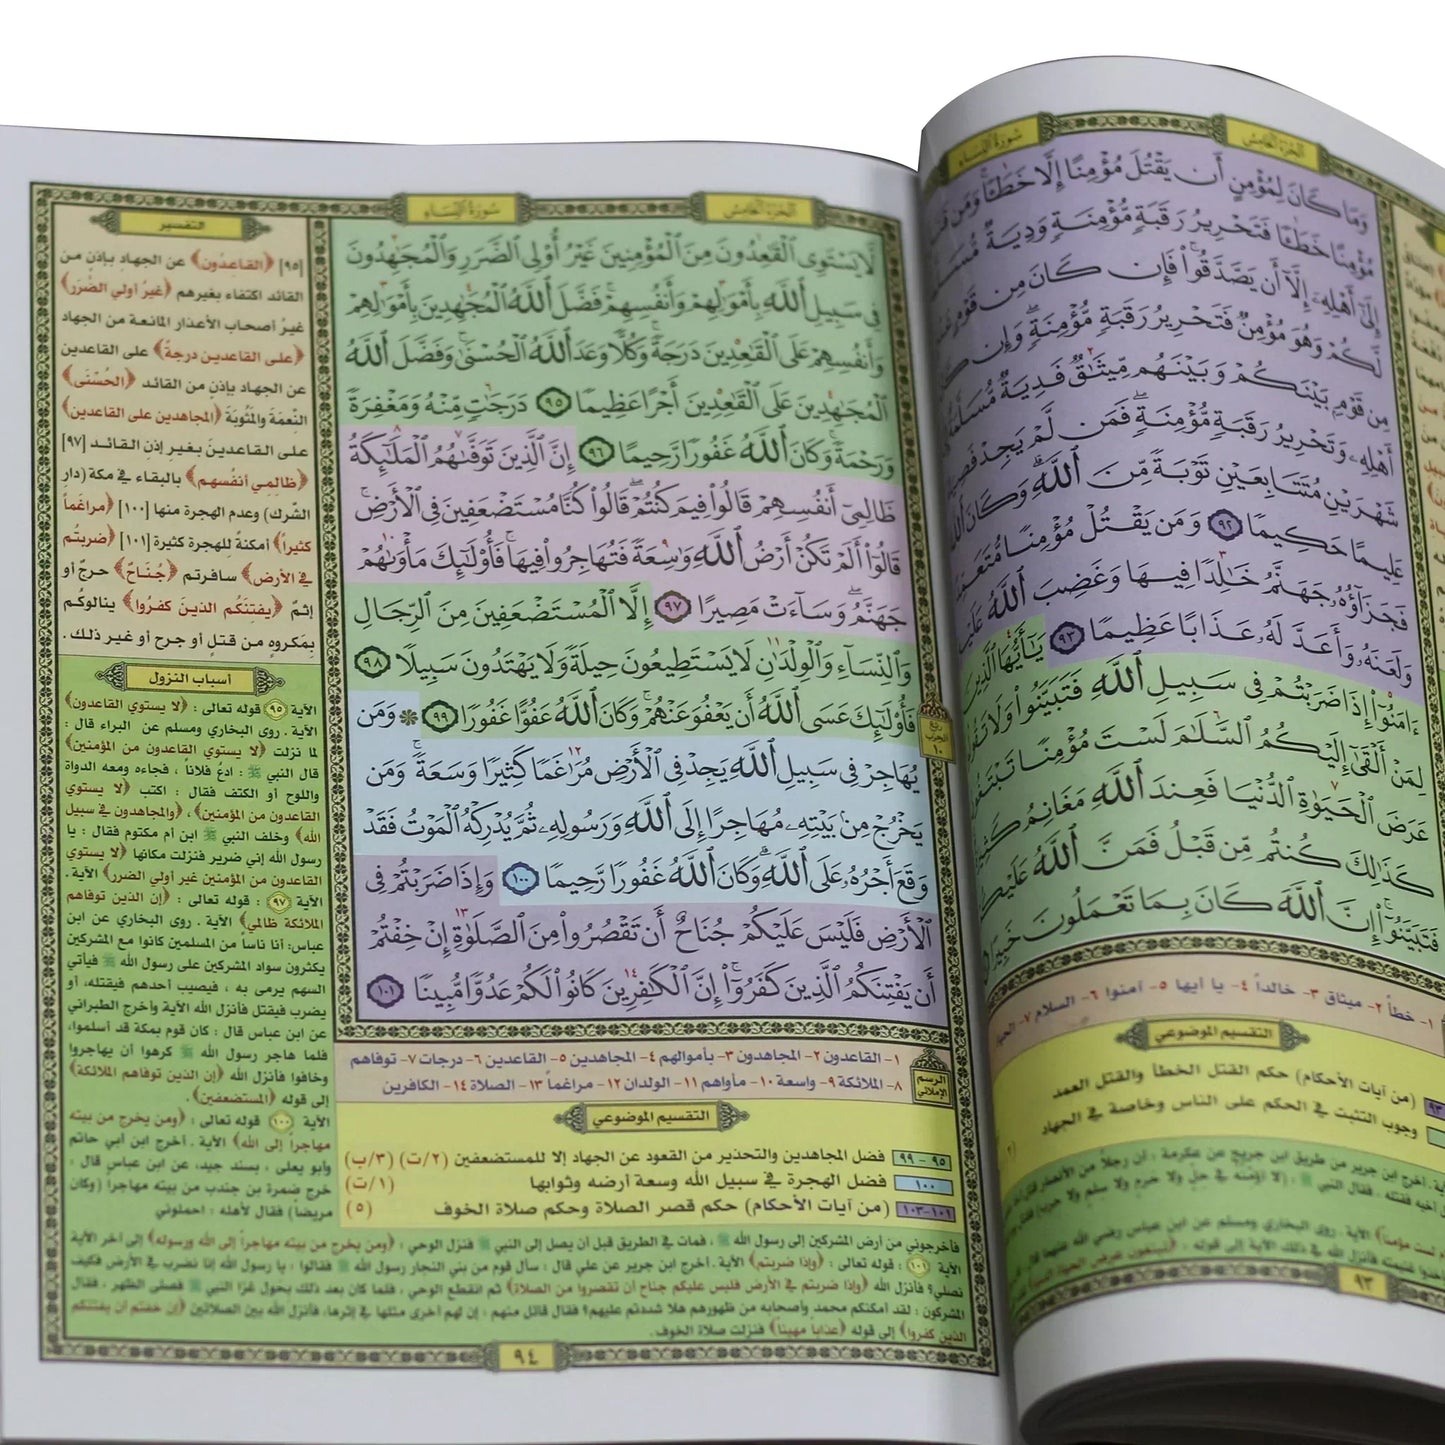 سورة النساء
الجزء الخامس
وَمَا كَانَ لِمُؤْمِنٍ أَن يَقْتُلَ مُؤْمِنًا إِلَّا خَطَـًٔا وَمَن قَتَلَ
مُؤْمِنًا خَطَـًٔا فَتَحْرِيرُ رَقَبَةٍ مُّؤْمِنَةٍ وَدِيَةٌ
إِلَىٰٓ أَهْلِهِۦٓ إِلَّآ أَن يَصَّدَّقُوا۟ فَإِن كَانَ مِن قَوْمٍ
لَّكُمْ وَهُوَ مُؤْمِنٌ فَتَحْرِيرُ رَقَبَةٍ مُّؤْمِنَةٍ وَإِن
مِن قَوْمٍۭ بَيْنَكُمْ وَبَيْنَهُم مِّيثَٰقٌ فَدِيَةٌ مُّسَلَّمَةٌ
أَهْلِهِۦ وَتَحْرِيرُ رَقَبَةٍ مُّؤْمِنَةٍ فَمَن لَّمْ يَجِدْ
شَهْرَيْنِ مُتَتَابِعَيْنِ تَوْبَةً مِّنَ ٱللَّهِ وَكَانَ ٱللَّهُ
عَلِيمًا حَكِيمًا ٩٢ وَمَن يَقْتُلْ مُؤْمِنًا
فَجَزَآؤُهُۥ جَهَنَّمُ خَٰلِدًا فِيهَا وَغَضِبَ ٱللَّهُ
وَلَعَنَهُۥ وَأَعَدَّ لَهُۥ عَذَابًا عَظِيمًا ٩٣ يَٰٓأَيُّهَا ٱلَّذِينَ
ءَامَنُوٓا۟ إِذَا ضَرَبْتُمْ فِى سَبِيلِ ٱللَّهِ فَتَبَيَّنُوا۟ وَلَا
لِمَنْ أَلْقَىٰٓ إِلَيْكُمُ ٱلسَّلَٰمَ لَسْتَ مُؤْمِنًا
عَرَضَ ٱلْحَيَوٰةِ ٱلدُّنْيَا فَعِندَ ٱللَّهِ مَغَانِمُ
كَذَٰلِكَ كُنتُم مِّن قَبْلُ فَمَنَّ ٱللَّهُ
فَتَبَيَّنُوٓا۟ إِنَّ ٱللَّهَ كَانَ بِمَا تَعْمَلُونَ
١- خطأ ٢- ميثاق ٣- خالداً ٤- يا أيها ٥- آمنوا ٦- السلام ٧-
التقسيم الموضوعي
٩٣ (من آيات الأحكام) حكم القتل الخطأ والقتل العمد
وجوب التثبت في الحكم على الناس وخاصة في الجهاد
٩٣
سورة النساء
الجزء الخامس
لَّا يَسْتَوِى ٱلْقَٰعِدُونَ مِنَ ٱلْمُؤْمِنِينَ غَيْرُ أُو۟لِى ٱلضَّرَرِ وَٱلْمُجَٰهِدُونَ
فِى سَبِيلِ ٱللَّهِ بِأَمْوَٰلِهِمْ وَأَنفُسِهِمْ فَضَّلَ ٱللَّهُ ٱلْمُجَٰهِدِينَ بِأَمْوَٰلِهِمْ
وَأَنفُسِهِمْ عَلَى ٱلْقَٰعِدِينَ دَرَجَةً وَكُلًّا وَعَدَ ٱللَّهُ ٱلْحُسْنَىٰ وَفَضَّلَ ٱللَّهُ
ٱلْمُجَٰهِدِينَ عَلَى ٱلْقَٰعِدِينَ أَجْرًا عَظِيمًا ٩٥ دَرَجَٰتٍ مِّنْهُ وَمَغْفِرَةً
وَرَحْمَةً وَكَانَ ٱللَّهُ غَفُورًا رَّحِيمًا ٩٦ إِنَّ ٱلَّذِينَ تَوَفَّىٰهُمُ ٱلْمَلَٰٓئِكَةُ
ظَالِمِىٓ أَنفُسِهِمْ قَالُوا۟ فِيمَ كُنتُمْ قَالُوا۟ كُنَّا مُسْتَضْعَفِينَ فِى ٱلْأَرْضِ
قَالُوٓا۟ أَلَمْ تَكُنْ أَرْضُ ٱللَّهِ وَٰسِعَةً فَتُهَاجِرُوا۟ فِيهَا فَأُو۟لَٰٓئِكَ مَأْوَىٰهُمْ
جَهَنَّمُ وَسَآءَتْ مَصِيرًا ٩٧ إِلَّا ٱلْمُسْتَضْعَفِينَ مِنَ ٱلرِّجَالِ
وَٱلنِّسَآءِ وَٱلْوِلْدَٰنِ لَا يَسْتَطِيعُونَ حِيلَةً وَلَا يَهْتَدُونَ سَبِيلًا ٩٨
فَأُو۟لَٰٓئِكَ عَسَى ٱللَّهُ أَن يَعْفُوَ عَنْهُمْ وَكَانَ ٱللَّهُ عَفُوًّا غَفُورًا ٩٩ ۞ وَمَن
يُهَاجِرْ فِى سَبِيلِ ٱللَّهِ يَجِدْ فِى ٱلْأَرْضِ مُرَٰغَمًا كَثِيرًا وَسَعَةً وَمَن
يَخْرُجْ مِنۢ بَيْتِهِۦ مُهَاجِرًا إِلَى ٱللَّهِ وَرَسُولِهِۦ ثُمَّ يُدْرِكْهُ ٱلْمَوْتُ فَقَدْ
وَقَعَ أَجْرُهُۥ عَلَى ٱللَّهِ وَكَانَ ٱللَّهُ غَفُورًا رَّحِيمًا ١٠٠ وَإِذَا ضَرَبْتُمْ فِى
ٱلْأَرْضِ فَلَيْسَ عَلَيْكُمْ جُنَاحٌ أَن تَقْصُرُوا۟ مِنَ ٱلصَّلَوٰةِ إِنْ خِفْتُمْ
أَن يَفْتِنَكُمُ ٱلَّذِينَ كَفَرُوٓا۟ إِنَّ ٱلْكَٰفِرِينَ كَانُوا۟ لَكُمْ عَدُوًّا مُّبِينًا ١٠١
ربع
الحزب
١٠
التفسير
[٩٥] ﴿القاعدُون﴾ عن الجهادِ بإذنٍ من
القائد اكتفاء بغيرهم ﴿غيرُ أولي الضَّرَر﴾
غيرُ أصحاب الأعذار المانعة من الجهاد
﴿على القاعدين درجةً﴾ على القاعدين
عن الجهاد بإذنٍ من القائد ﴿الحُسْنَى﴾
النِّعمَة والمَثُوبَة ﴿المجاهدين على القاعدين﴾
على القاعدين بغير إذن القائد [٩٧]
﴿ظالِمِي أنفُسهم﴾ بالبقاء في مكة (دار
الشِّرك) وعدم الهجرة منها [١٠٠] ﴿مراغَماً
كثيراً﴾ أمكنةً للهجرة كثيرة [١٠١] ﴿ضربتُم
في الأرض﴾ سافرتم ﴿جُنَاحٌ﴾ حرجٌ أو
إثمٌ ﴿يفتِنَكُم الذينَ كفرُوا﴾ ينالوكُم
بِمَكروهٍ من قتلٍ أو جرحٍ أو غير ذلك.
أسباب النزول
الآية ٩٥ قوله تعالى: ﴿لا يستوي القاعدون﴾
الآية. روى البخاري ومسلم عن البراء قال:
لما نزلت ﴿لا يستوي القاعدون من المؤمنين﴾
قال النبي ﷺ: ادعُ فلاناً، فجاءه ومعه الدواة
واللوح أو الكتف فقال: اكتب ﴿لا يستوي
القاعدون من المؤمنين﴾، ﴿والمجاهدون في سبيل
الله﴾ وخلف النبي ﷺ ابن أم مكتوم فقال: يا
رسول الله إني ضرير فنزلت مكانها ﴿لا يستوي
القاعدون من المؤمنين غير أولي الضرر﴾ الآية.
الآية ٩٧: قوله تعالى: ﴿إن الذين توفاهم
الملائكة ظالمي﴾ الآية. روى البخاري عن ابن
عباس: أنا ناساً من المسلمين كانوا مع المشركين
يكثرون سواد المشركين على رسول الله ﷺ فيأتي
السهم يرمى به، فيصيب أحدهم فيقتله، أو
يضرب فيقتل فأنزل الله الآية وأخرج الطبراني
عن ابن عباس قال: كان قوم بمكة قد أسلموا،
فلما هاجر رسول الله ﷺ كرهوا أن يهاجروا
وخافوا فأنزل الله ﴿إن الذين توفاهم الملائكة﴾
إلى قوله ﴿المستضعفين﴾
الآية ١٠٠ قوله تعالى: ﴿ومن يخرج من بيته
مهاجراً إلى الله﴾ الآية. أخرج ابن أبي حاتم
وأبو يعلى، بسند جيد، عن ابن عباس قال:
خرج ضمرة بن جندب من بيته مهاجراً (وكان
مريضاً) فقال لأهله: احملوني
الرسم الإملائي
١- القاعدون ٢- المجاهدون ٣- بأموالهم ٤- المجاهدين ٥- القاعدين ٦- درجات ٧- توفاهم
٨- الملائكة ٩- واسعة ١٠- مأواهم ١١- الولدان ١٢- مراغماً ١٣- الصلاة ١٤- الكافرين
التقسيم الموضوعي
٩٥ - ٩٩ فضل المجاهدين والتحذير من القعود عن الجهاد إلا للمستضعفين (٢/ت) (٣/ب)
١٠٠ فضل الهجرة في سبيل الله وسعة أرضه وثوابها (١/ت)
١٠١-١٠٣ (من آيات الأحكام) حكم قصر الصلاة وحكم صلاة الخوف (٥)
فأخرجوني من أرض المشركين إلى رسول الله ﷺ، فمات في الطريق قبل أن يصل إلى النبي ﷺ فنزل الوحي: ﴿ومن يخرج من بيته مهاجراً إلى الله ورسوله﴾ إلى آخر الآية
الآية ١٠١: قوله تعالى: ﴿وإذا ضربتم﴾ الآية: أخرج ابن جرير عن علي قال: سأل قوم من بني النجار رسول الله ﷺ فقالوا: يا رسول الله إنا نضرب في الأرض فكيف
نصلي؟ فأنزل الله ﴿وإذا ضربتم في الأرض فليس عليكم جناح أن تقصروا من الصلاة﴾ ثم انقطع الوحي، فلما كان بعد ذلك بحول غزا النبي ﷺ فصلى الظهر، فقال
المشركون: لقد أمكنكم محمد وأصحابه من ظهورهم هلا شددتم عليهم؟ فقال قائل منهم: إن لهم أخرى مثلها في إثرها، فأنزل الله بين الصلاتين ﴿إن خفتم أن يفتنكم
الذين كفروا﴾ إلى قوله ﴿عذاباً مهيناً﴾ فنزلت صلاة الخوف.
٩٤